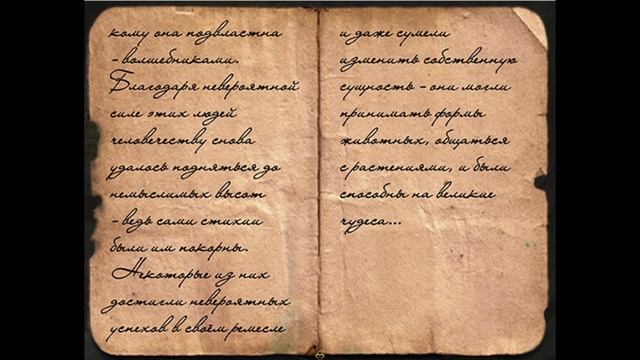 кому она подвластна
- волшебниками.
Благодаря невероятной
силе этих людей
человечеству снова
удалось подняться до
немыслимых высот
- ведь сами стихии
были им покорны.
Некоторые из них
достигли невероятных
успехов в своём ремесле
и даже сумели
изменить собственную
сущность - они могли
принимать формы
животных, общаться
с растениями, и были
способны на великие
чудеса...